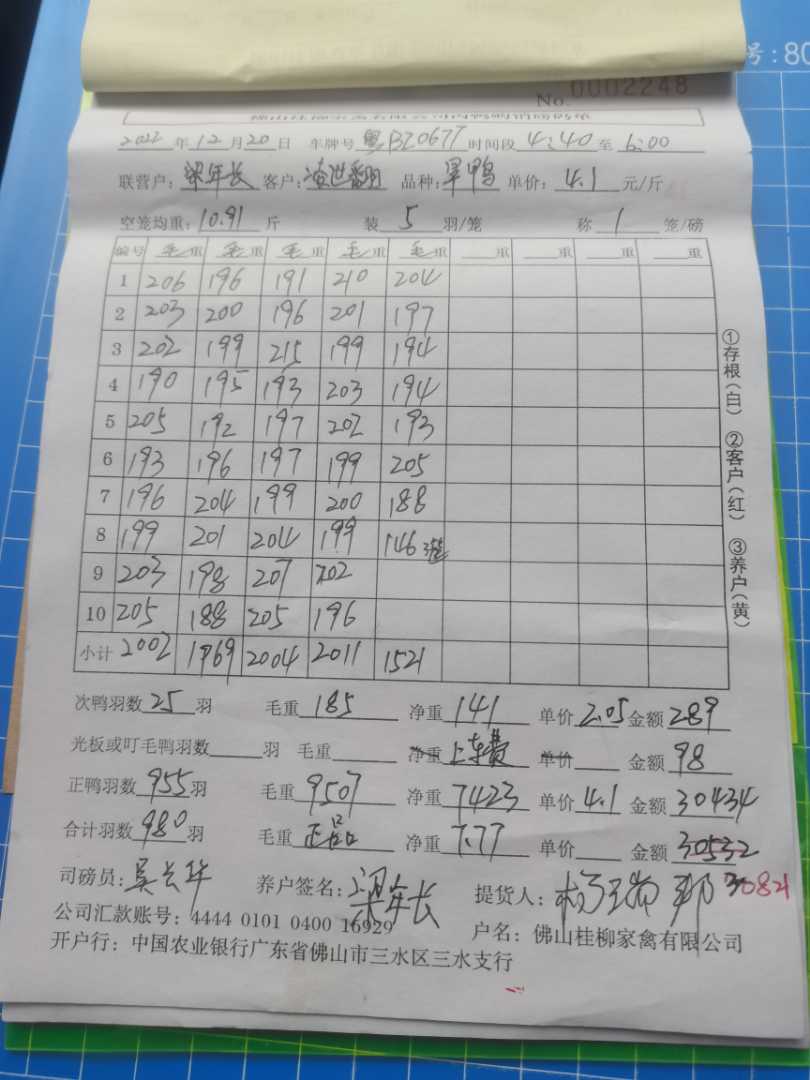 号:80
No. 0002248
2022年12月20日 车牌号 粤BZ0677 时间段 4:40 至 6:00
联营户: 梁年长 客户: 品种: 旱鸭 单价: 4.1 元/斤
空笼均重: 10.91 斤 装 5 羽/笼 称 1 笼/磅
编号 毛重 毛重 毛重 毛重 毛重 重 重 重 重
1 206 196 191 210 204
2 203 200 196 201 197
3 202 199 215 199 194
4 190 195 193 203 194
5 205 192 197 202 193
6 193 196 197 199 205
7 196 204 199 200 188
8 199 201 204 199 146
9 203 198 207 202
10 205 188 205 196
小计 2002 1969 2004 2011 1521
①存根(白) ②客户(红) ③养户(黄)
次鸭羽数 25 羽 毛重 185 净重 141 单价 2.05 金额 289
光板或叮毛鸭羽数 羽 毛重 净重 上车费 单价 金额 98
正鸭羽数 955 羽 毛重 9507 净重 7423 单价 4.1 金额 30434
合计羽数 980 羽 毛重 正品 净重 7.77 单价 金额 30532
30821
司磅员: 吴长华 养户签名: 梁年长 提货人:
公司汇款账号: 4444 0101 0400 16929 户名: 佛山桂柳家禽有限公司
开户行: 中国农业银行广东省佛山市三水区三水支行